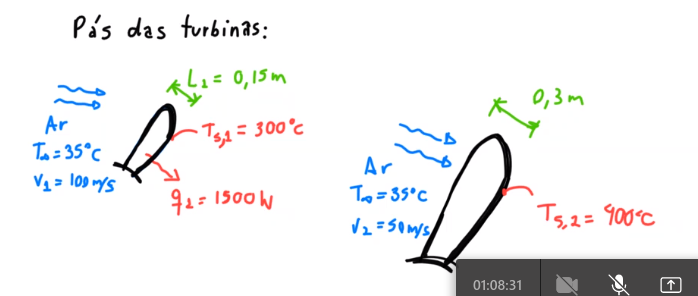 Pás das turbinas:
L₁ = 0,15m
Ar
T∞ = 35°C
V₁ = 100 m/s
Ts,1 = 300°C
q₁ = 1500 W
0,3 m
Ar
T∞ = 35°C
V₂ = 50 m/s
Ts,2 = 400°C
01:08:31